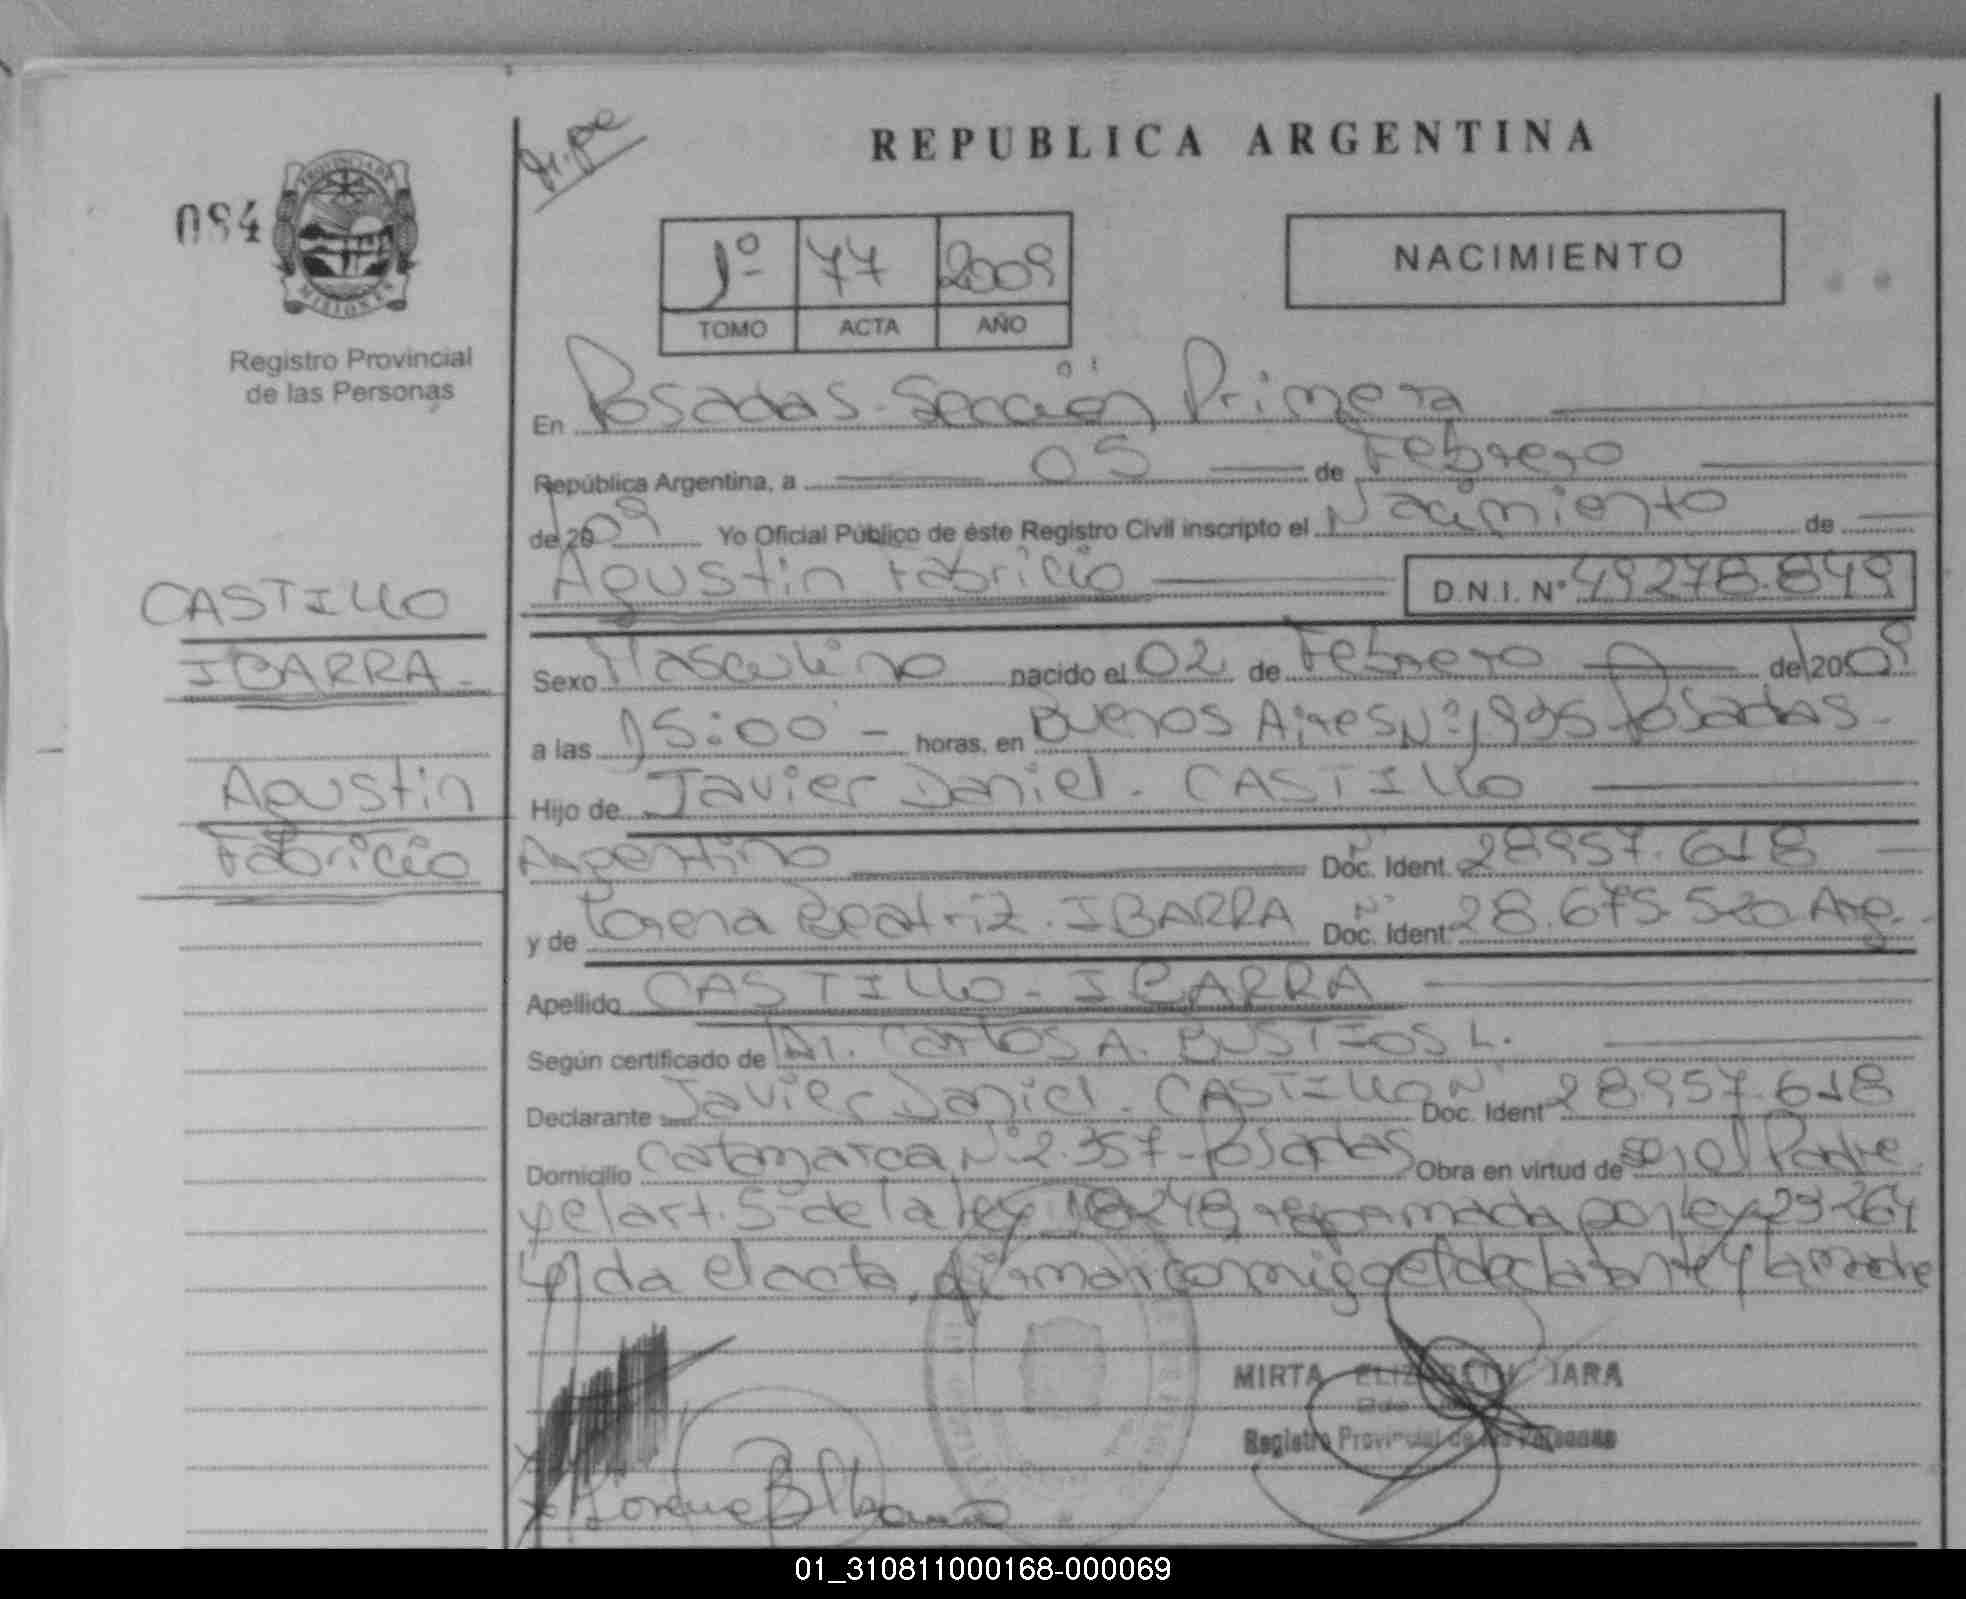 REPUBLICA ARGENTINA
084
PROVINCIA DE
MISIONES
Registro Provincial
de las Personas
1º 77 2009
TOMO ACTA AÑO
NACIMIENTO
En Posadas - Sección Primera
República Argentina, a 05 de Febrero
de 2009 Yo Oficial Público de éste Registro Civil inscripto el Nacimiento de
Agustin Fabricio D.N.I. Nº 49278.849
CASTILLO
IBARRA -
Agustin
Fabricio
Sexo Masculino nacido el 02 de Febrero de 2009
a las 15:00 - horas, en Buenos Aires Nº 1995 Posadas -
Hijo de Javier Daniel - CASTILLO
Argentino Doc. Ident. Nº 28957.618
y de Lorena Beatriz - IBARRA Doc. Ident. Nº 28.675.520 Arg.
Apellido CASTILLO - IBARRA
Según certificado de Dr. Carlos A. BUSTIOS L.
Declarante Javier Daniel - CASTILLO Doc. Ident Nº 28957.618
Domicilio Catamarca Nº 2.357 - Posadas Obra en virtud de ser el Padre
y el art. 5º de la ley 18248 reformada por ley 23264
Leida el acta, firman conmigo el declarante y la madre
MIRTA ELIZABETH JARA
Registro Provincial de las Personas
Lorena B Ibarra
01_310811000168-000069